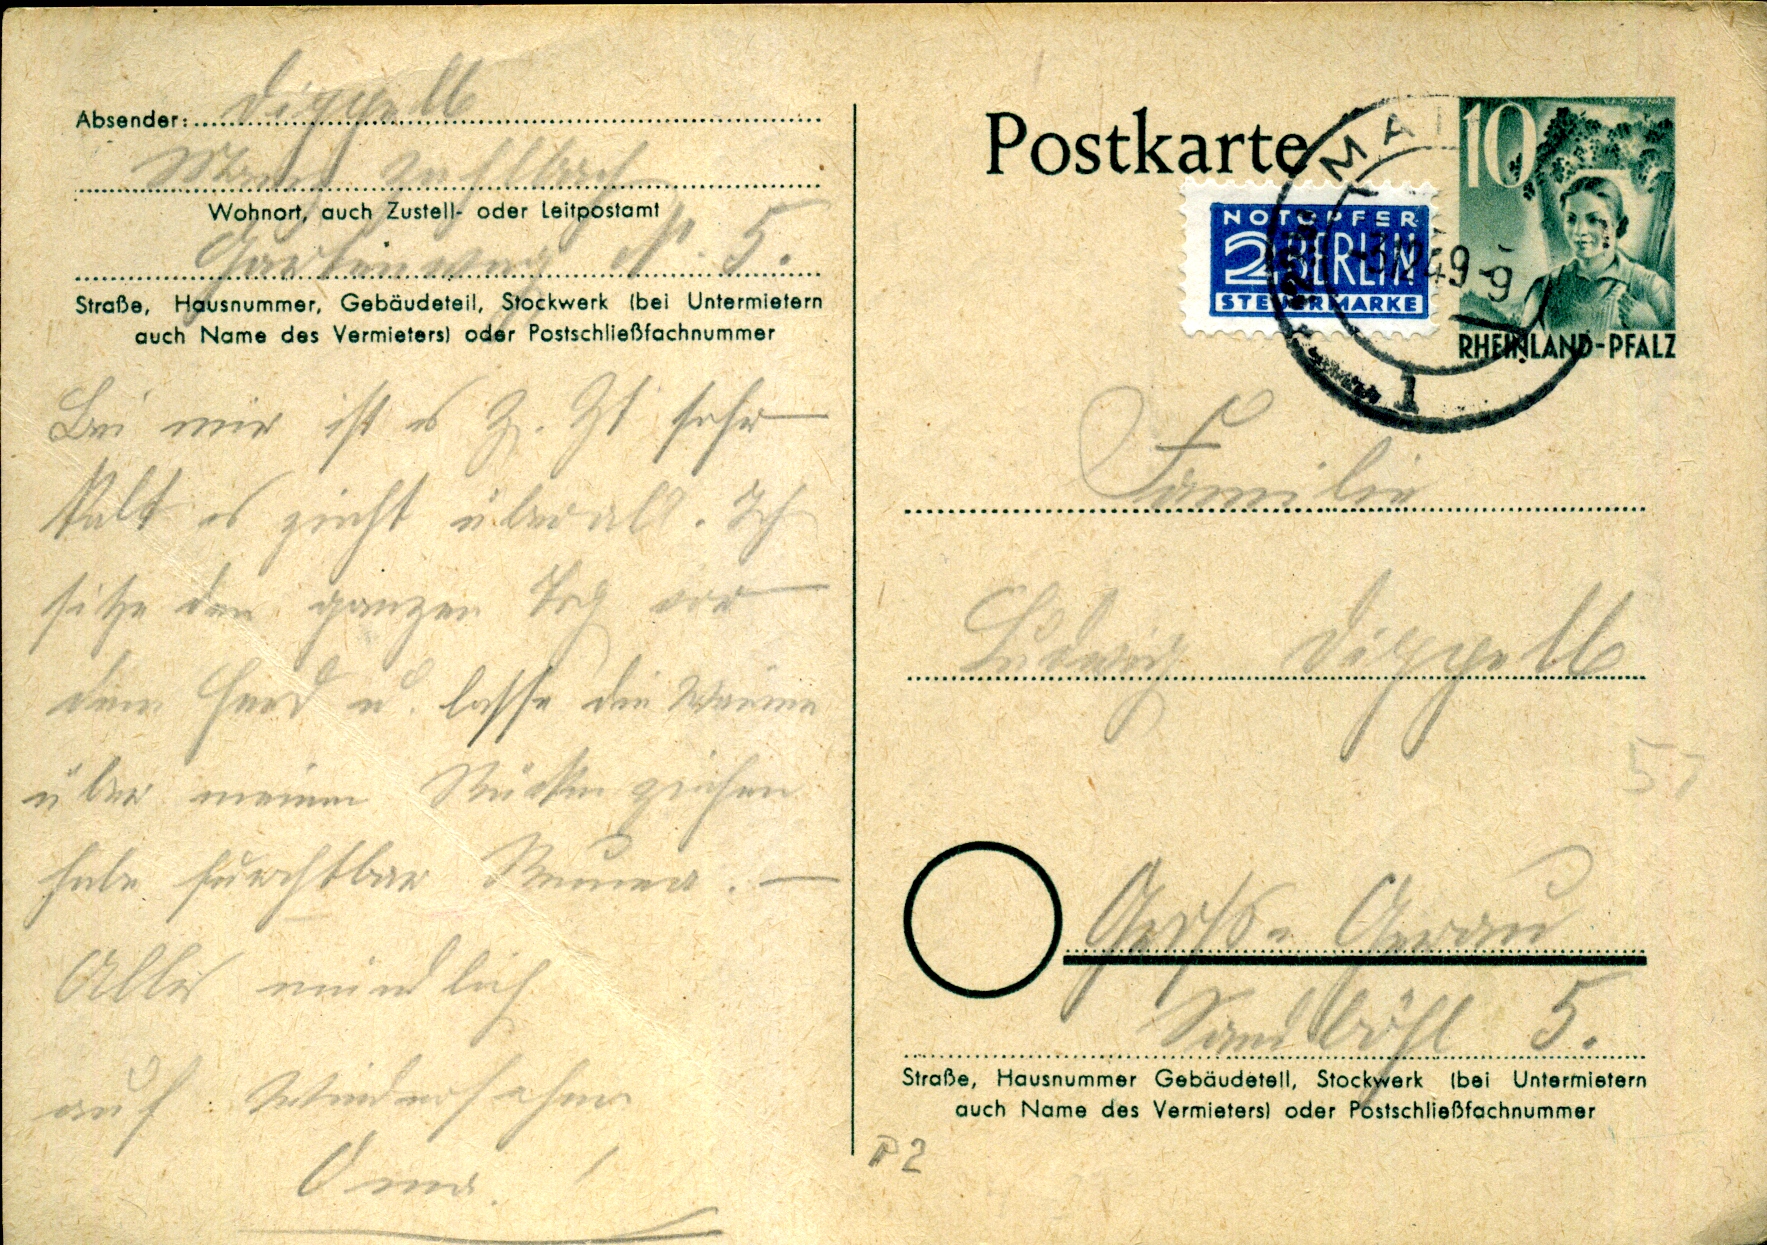 Absender: Dippell
Mainz Zahlbach
Wohnort, auch Zustell- oder Leitpostamt
Gartenweg N. 5.
Straße, Hausnummer, Gebäudeteil, Stockwerk (bei Untermietern
auch Name des Vermieters) oder Postschließfachnummer
Bei mir ist es z. Zt sehr
kalt es zieht überall. Ich
sitze den ganzen Tag vor
dem Herd u. lasse die Wärme
über meinen Rücken ziehen
habe furchtbar Rheuma. —
Alles mündlich
auf Wiedersehen
Oma!
Postkarte
MAINZ
-3.12.49.-9
1
10
NOTOPFER
2 BERLIN
STEUERMARKE
RHEINLAND-PFALZ
Familie
Ludwig Dippell
57
Groß-Gerau
Sandböhl 5.
Straße, Hausnummer Gebäudeteil, Stockwerk (bei Untermietern
auch Name des Vermieters) oder Postschließfachnummer
P2